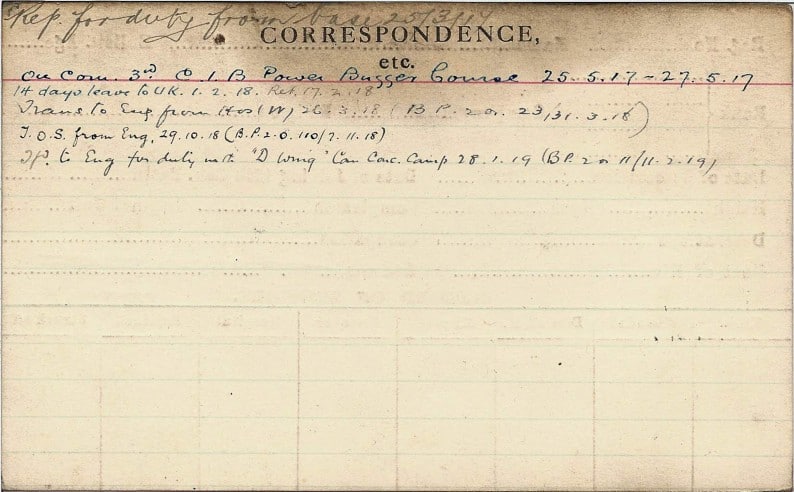 Rep for duty from base 25/3/17
CORRESPONDENCE,
etc.
On Com. 3rd C. I. B Power Bugger Course 25.5.17 - 27.5.17
14 days leave to UK. 1.2.18. Ret. 17.2.18
Trans. to Eng from Hos (W) 26.3.18 (B.P. 2 or. 23/31.3.18)
T.O.S. from Eng, 29.10.18 (B.P.2.O. 110/7.11.18)
to Eng for duty with "D Wing" Can Conc. Camp 28.1.19 (B.P. 2 o 11/11.2.19)